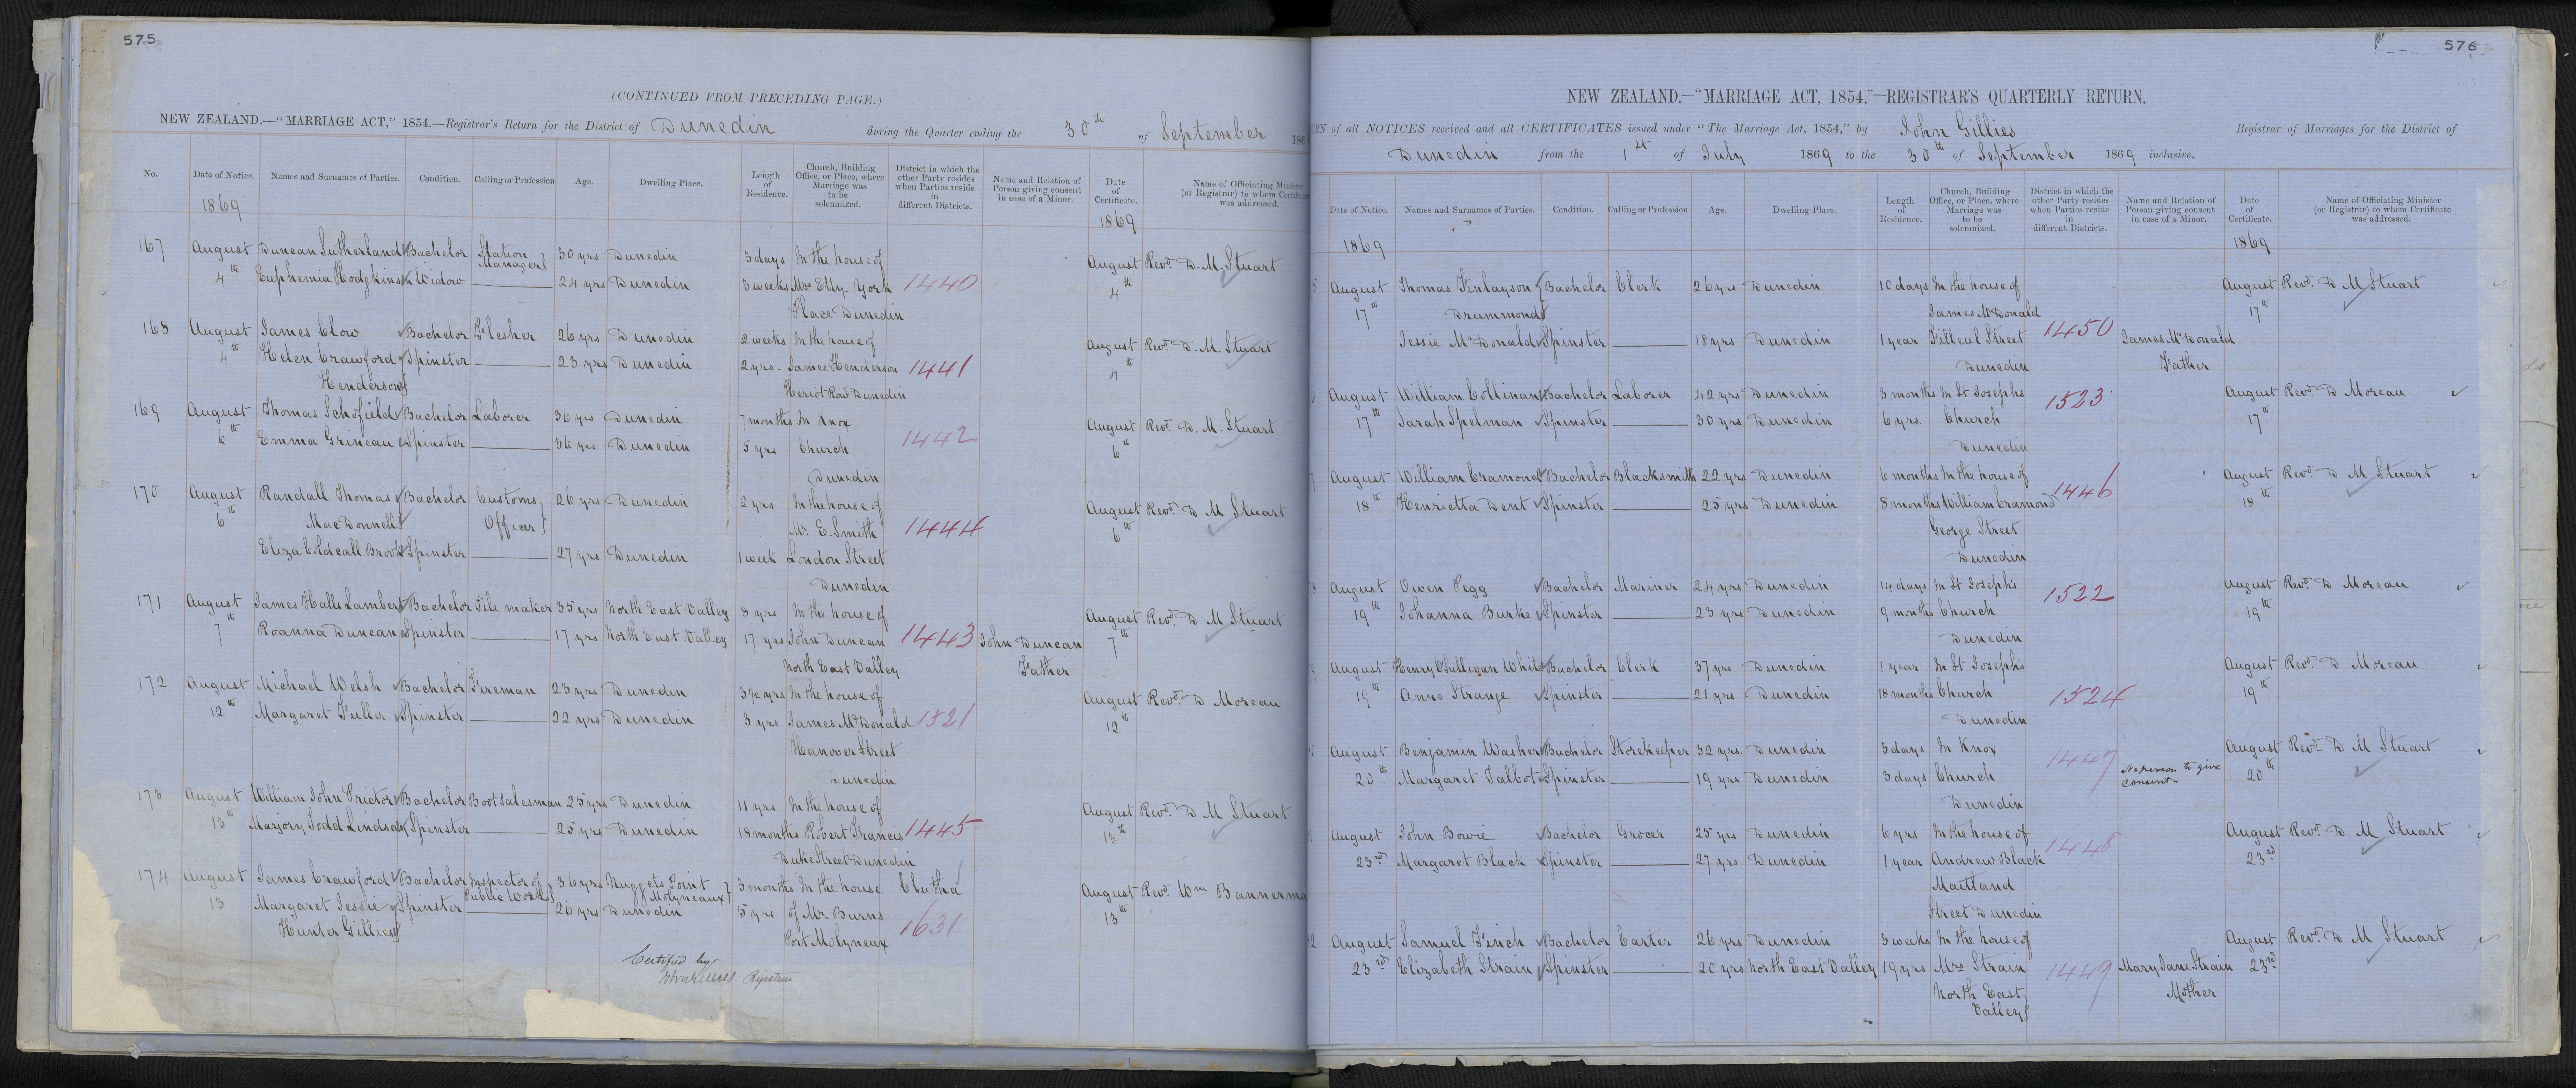 575
(CONTINUED FROM PRECEDING PAGE.)
NEW ZEALAND.—"MARRIAGE ACT," 1854.—Registrar's Return for the District of Dunedin during the Quarter ending the 30th of September 186
No. Date of Notice. Names and Surnames of Parties. Condition. Calling or Profession Age. Dwelling Place. Length of Residence. Church, Building Office, or Place, where Marriage was to be solemnized. District in which the other Party resides when Parties reside in different Districts. Name and Relation of Person giving consent in case of a Minor. Date of Certificate. Name of Officiating Minister (or Registrar) to whom Certificate was addressed.
1869 1869
167 August Duncan Sutherland Bachelor Station Manager 30 yrs Dunedin 3 days In the house of August Revd. D. M. Stuart
4th Euphemia Hodgkins Widow 24 yrs Dunedin 3 weeks Mrs Etty. York 1440 4th
Place Dunedin
168 August James Clow Bachelor Flesher 26 yrs Dunedin 2 weeks In the house of August Revd. D. M. Stuart
4th Helen Crawford Spinster 23 yrs Dunedin 2 yrs. James Henderson 1441 4th
Henderson Heriot Row Dunedin
169 August Thomas Schofield Bachelor Laborer 36 yrs Dunedin 7 months In Knox August Revd. D. M. Stuart
6th Emma Grineau Spinster 36 yrs Dunedin 5 yrs Church 1442 6th
Dunedin
170 August Randall Thomas Bachelor Customs 26 yrs Dunedin 2 yrs In the house of August Revd. D. M Stuart
6th MacDonnell Officer Mr. E. Smith 1444 6th
Eliza Coldcall Brook Spinster 27 yrs Dunedin 1 week London Street
Dunedin
171 August James Halls Lambert Bachelor Tile maker 35 yrs North East Valley 8 yrs In the house of August Revd. D. M Stuart
7th Roanna Duncan Spinster 17 yrs North East Valley 17 yrs John Duncan 1443 John Duncan 7th
North East Valley Father
172 August Michael Welsh Bachelor Fireman 23 yrs Dunedin 3½ yrs In the house of August Revd. D Moreau
12th Margaret Fuller Spinster 22 yrs Dunedin 3 yrs James McDonald 1521 12th
Hanover Street
Dunedin
173 August William John Prictor Bachelor Boot Salesman 25 yrs Dunedin 11 yrs In the house of August Revd. D M Stuart
13th Marjory Todd Lindsay Spinster 25 yrs Dunedin 18 months Robert Francis 1445 13th
Duke Street Dunedin
174 August James Crawford Bachelor Inspector of Public Works 36 yrs Nuggets Point Molyneaux 3 months In the house Clutha August Revd. Wm Bannerma
13 Margaret Jessie Spinster 26 yrs Dunedin 5 yrs of Mr. Burns 1631 13th
Hunter Gillies Port Molyneux
Certified by
John Gillies Registrar
576
NEW ZEALAND.—"MARRIAGE ACT, 1854."—REGISTRAR'S QUARTERLY RETURN.
RN of all NOTICES received and all CERTIFICATES issued under "The Marriage Act, 1854," by John Gillies Registrar of Marriages for the District of
Dunedin from the 1st of July 1869 to the 30th of September 1869 inclusive.
Date of Notice. Names and Surnames of Parties. Condition. Calling or Profession Age. Dwelling Place. Length of Residence. Church, Building Office, or Place, where Marriage was to be solemnized. District in which the other Party resides when Parties reside in different Districts. Name and Relation of Person giving consent in case of a Minor. Date of Certificate. Name of Officiating Minister (or Registrar) to whom Certificate was addressed.
1869 1869
5 August Thomas Finlayson Bachelor Clerk 26 yrs Dunedin 10 days In the house of August Revd. D M Stuart
17th Drummond James McDonald 17th
Jessie McDonald Spinster 18 yrs Dunedin 1 year Filleul Street 1450 James McDonald
Dunedin Father
August William Collinan Bachelor Laborer 42 yrs Dunedin 3 months In St Josephs 1523 August Revd. D Moreau
17th Sarah Spelman Spinster 30 yrs Dunedin 6 yrs. Church 17th
Dunedin
7 August William Cramond Bachelor Blacksmith 22 yrs Dunedin 6 months In the house of August Revd. D M Stuart
18th Henrietta Dent Spinster 25 yrs Dunedin 8 months William Cramond 1446 18th
George Street
Dunedin
8 August Owen Pegg Bachelor Mariner 24 yrs Dunedin 14 days In St Josephs August Revd. D Moreau
19th Johanna Burke Spinster 23 yrs Dunedin 9 months Church 1522 19th
Dunedin
9 August Henry O'Sullivan White Bachelor Clerk 37 yrs Dunedin 1 year In St Josephs August Revd. D Moreau
19th Anne Strange Spinster 21 yrs Dunedin 18 months Church 1524 19th
Dunedin
August Benjamin Washer Bachelor Storekeeper 32 yrs. Dunedin 3 days In Knox August Revd. D M Stuart
20th Margaret Talbot Spinster 19 yrs Dunedin 3 days Church 1447 No person to give consent 20th
Dunedin
August John Bowie Bachelor Grocer 25 yrs Dunedin 6 yrs In the house of August Revd. D M Stuart
23rd Margaret Black Spinster 27 yrs Dunedin 1 year Andrew Black 1448 23rd
Maitland
Street Dunedin
2 August Samuel Finch Bachelor Carter 26 yrs Dunedin 3 weeks In the house of August Revd. D M Stuart
23rd Elizabeth Strain Spinster 20 yrs North East Valley 19 yrs Mrs Strain 1449 Mary Jane Strain 23rd
North East Mother
Valley